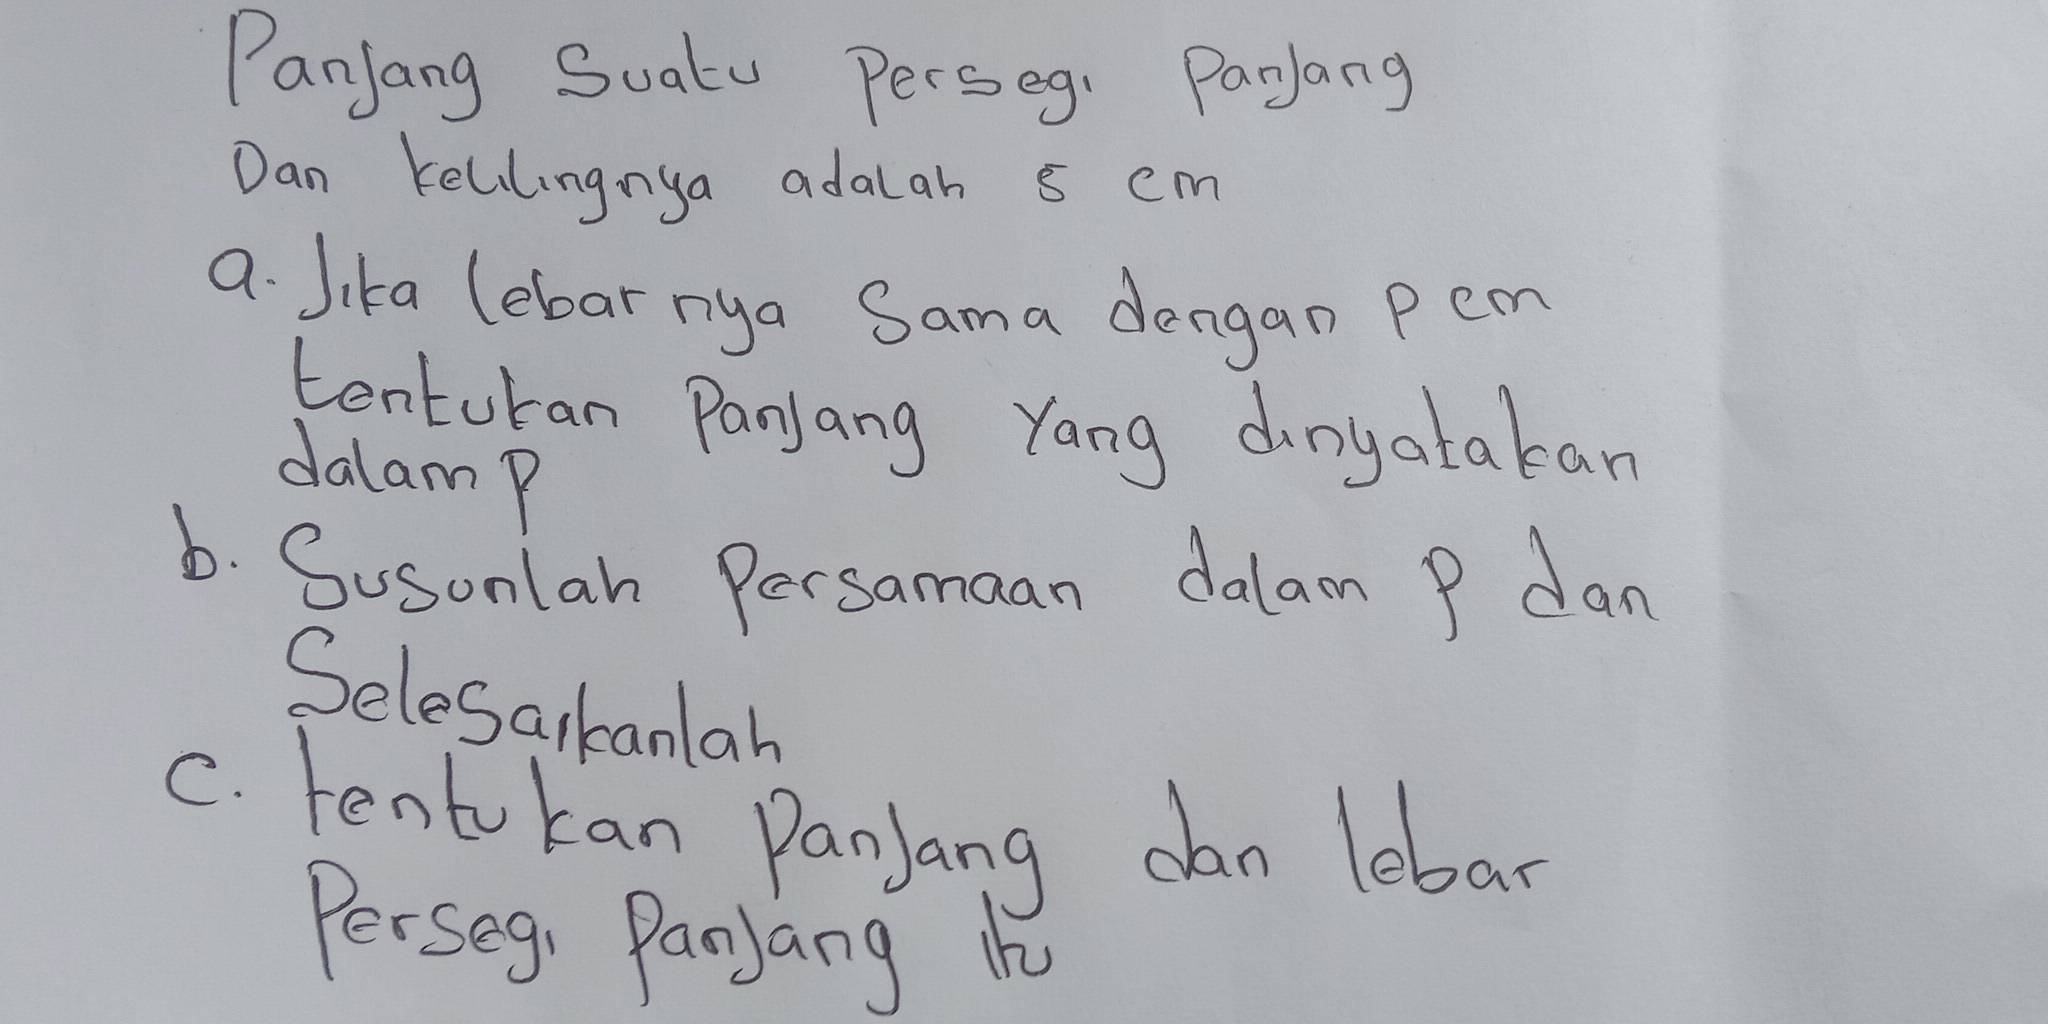 Panjang Suatu Persegi Panjang
Dan kelilingnya adalah 5 cm
a. Jika lebarnya Sama dengan p cm
tentukan Panjang Yang dinyatakan
dalam p
b. Susunlah Persamaan dalam p dan
Selesaikanlah
c. tentukan Panjang dan lebar
Persegi Panjang itu